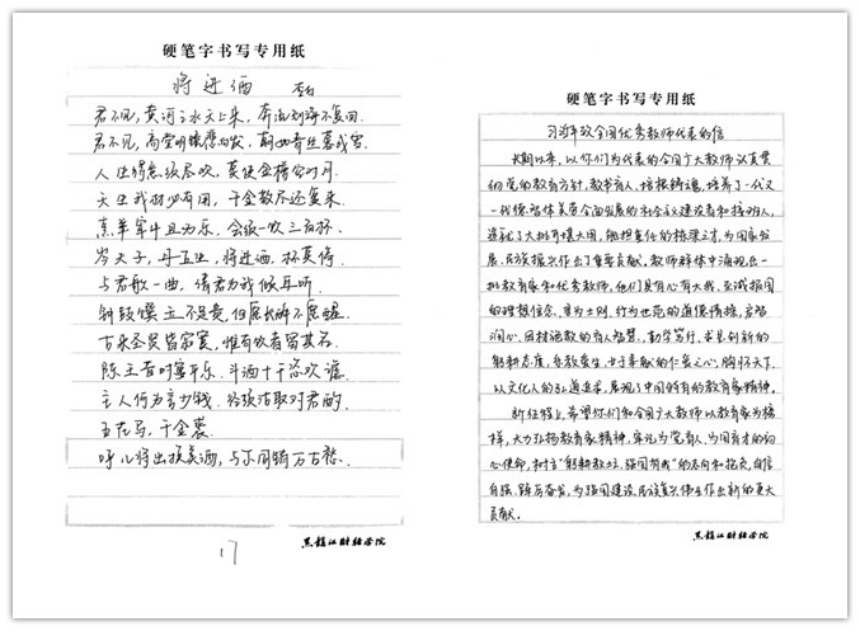 硬笔字书写专用纸
将进酒 李白
君不见,黄河之水天上来,奔流到海不复回.
君不见,高堂明镜悲白发,朝如青丝暮成雪.
人生得意须尽欢,莫使金樽空对月.
天生我材必有用,千金散尽还复来.
烹羊宰牛且为乐,会须一饮三百杯.
岑夫子,丹丘生,将进酒,杯莫停.
与君歌一曲,请君为我倾耳听.
钟鼓馔玉不足贵,但愿长醉不愿醒.
古来圣贤皆寂寞,惟有饮者留其名.
陈王昔时宴平乐,斗酒十千恣欢谑.
主人何为言少钱,径须沽取对君酌.
五花马,千金裘.
呼儿将出换美酒,与尔同销万古愁.
黑龙江财经学院
17
硬笔字书写专用纸
习近平致全国优秀教师代表的信
长期以来,以你们为代表的全国广大教师认真贯
彻党的教育方针,教书育人,培根铸魂,培养了一代又
一代德智体美劳全面发展的社会主义建设者和接班人,
造就了大批可堪大用、能担重任的栋梁之才,为国家发
展、民族振兴作出了重要贡献。教师群体中涌现出一
批教育家和优秀教师,他们具有心有大我、至诚报国
的理想信念,言为士则、行为世范的道德情操,启智
润心、因材施教的育人智慧,勤学笃行、求是创新的
躬耕态度,乐教爱生、甘于奉献的仁爱之心,胸怀天下、
以文化人的弘道追求,展现了中国特有的教育家精神。
新征程上,希望你们和全国广大教师以教育家为榜
样,大力弘扬教育家精神,牢记为党育人、为国育才的初
心使命,树立"躬耕教坛、强国有我"的志向和抱负,自信
自强、踔厉奋发,为强国建设、民族复兴伟业作出新的更大
贡献。
黑龙江财经学院